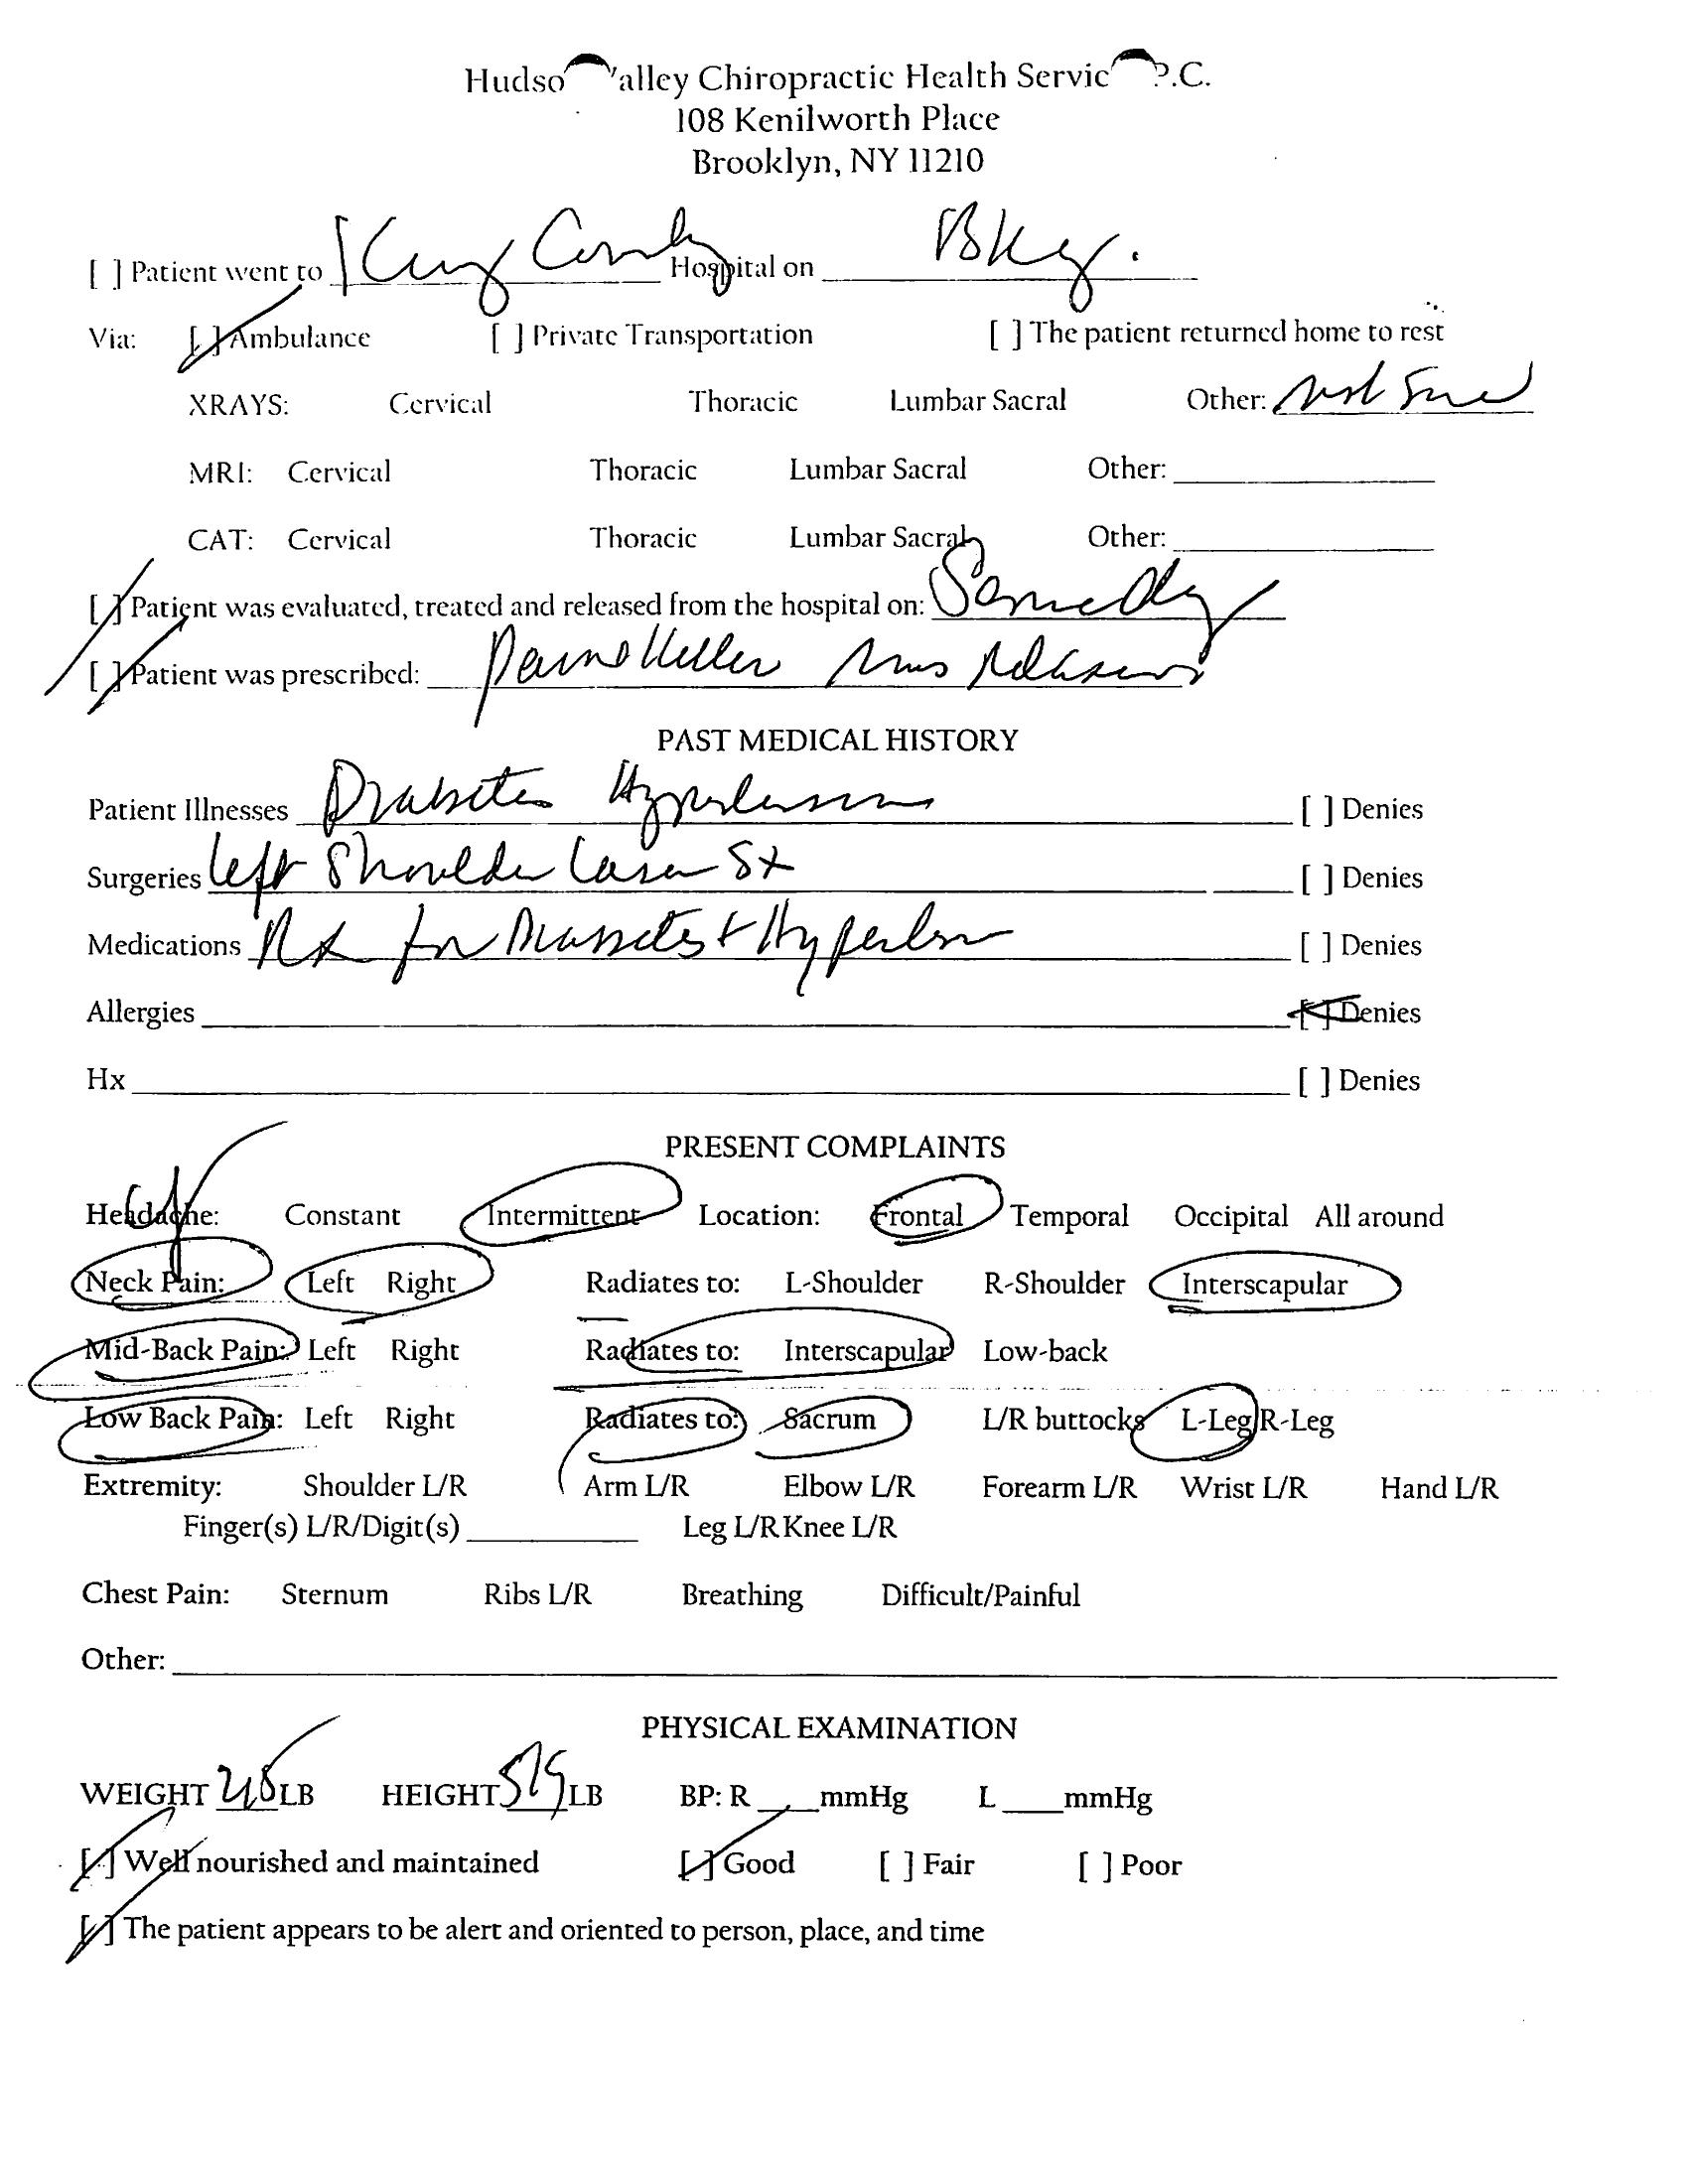 Hudso Valley Chiropractic Health Servic P.C.
108 Kenilworth Place
Brooklyn, NY 11210
[ ] Patient went to King County Hospital on Bky.
Via: [/] Ambulance [ ] Private Transportation [ ] The patient returned home to rest
XRAYS: Cervical Thoracic Lumbar Sacral Other: not sure
MRI: Cervical Thoracic Lumbar Sacral Other:
CAT: Cervical Thoracic Lumbar Sacral Other:
[/] Patient was evaluated, treated and released from the hospital on: Same day
[/] Patient was prescribed: Painkiller Mus Relaxers
PAST MEDICAL HISTORY
Patient Illnesses Diabetes Hypertension [ ] Denies
Surgeries left Shoulder Laser Sx [ ] Denies
Medications Rx for Diabetes + Hyperten [ ] Denies
Allergies [/] Denies
Hx [ ] Denies
PRESENT COMPLAINTS
Headache: Constant Intermittent Location: Frontal Temporal Occipital All around
Neck Pain: Left Right Radiates to: L-Shoulder R-Shoulder Interscapular
Mid-Back Pain: Left Right Radiates to: Interscapular Low-back
Low Back Pain: Left Right Radiates to: Sacrum L/R buttocks L-Leg R-Leg
Extremity: Shoulder L/R Arm L/R Elbow L/R Forearm L/R Wrist L/R Hand L/R
Finger(s) L/R/Digit(s) Leg L/R Knee L/R
Chest Pain: Sternum Ribs L/R Breathing Difficult/Painful
Other:
PHYSICAL EXAMINATION
WEIGHT LB HEIGHT LB BP: R mmHg L mmHg
[/] Well nourished and maintained [/] Good [ ] Fair [ ] Poor
[/] The patient appears to be alert and oriented to person, place, and time